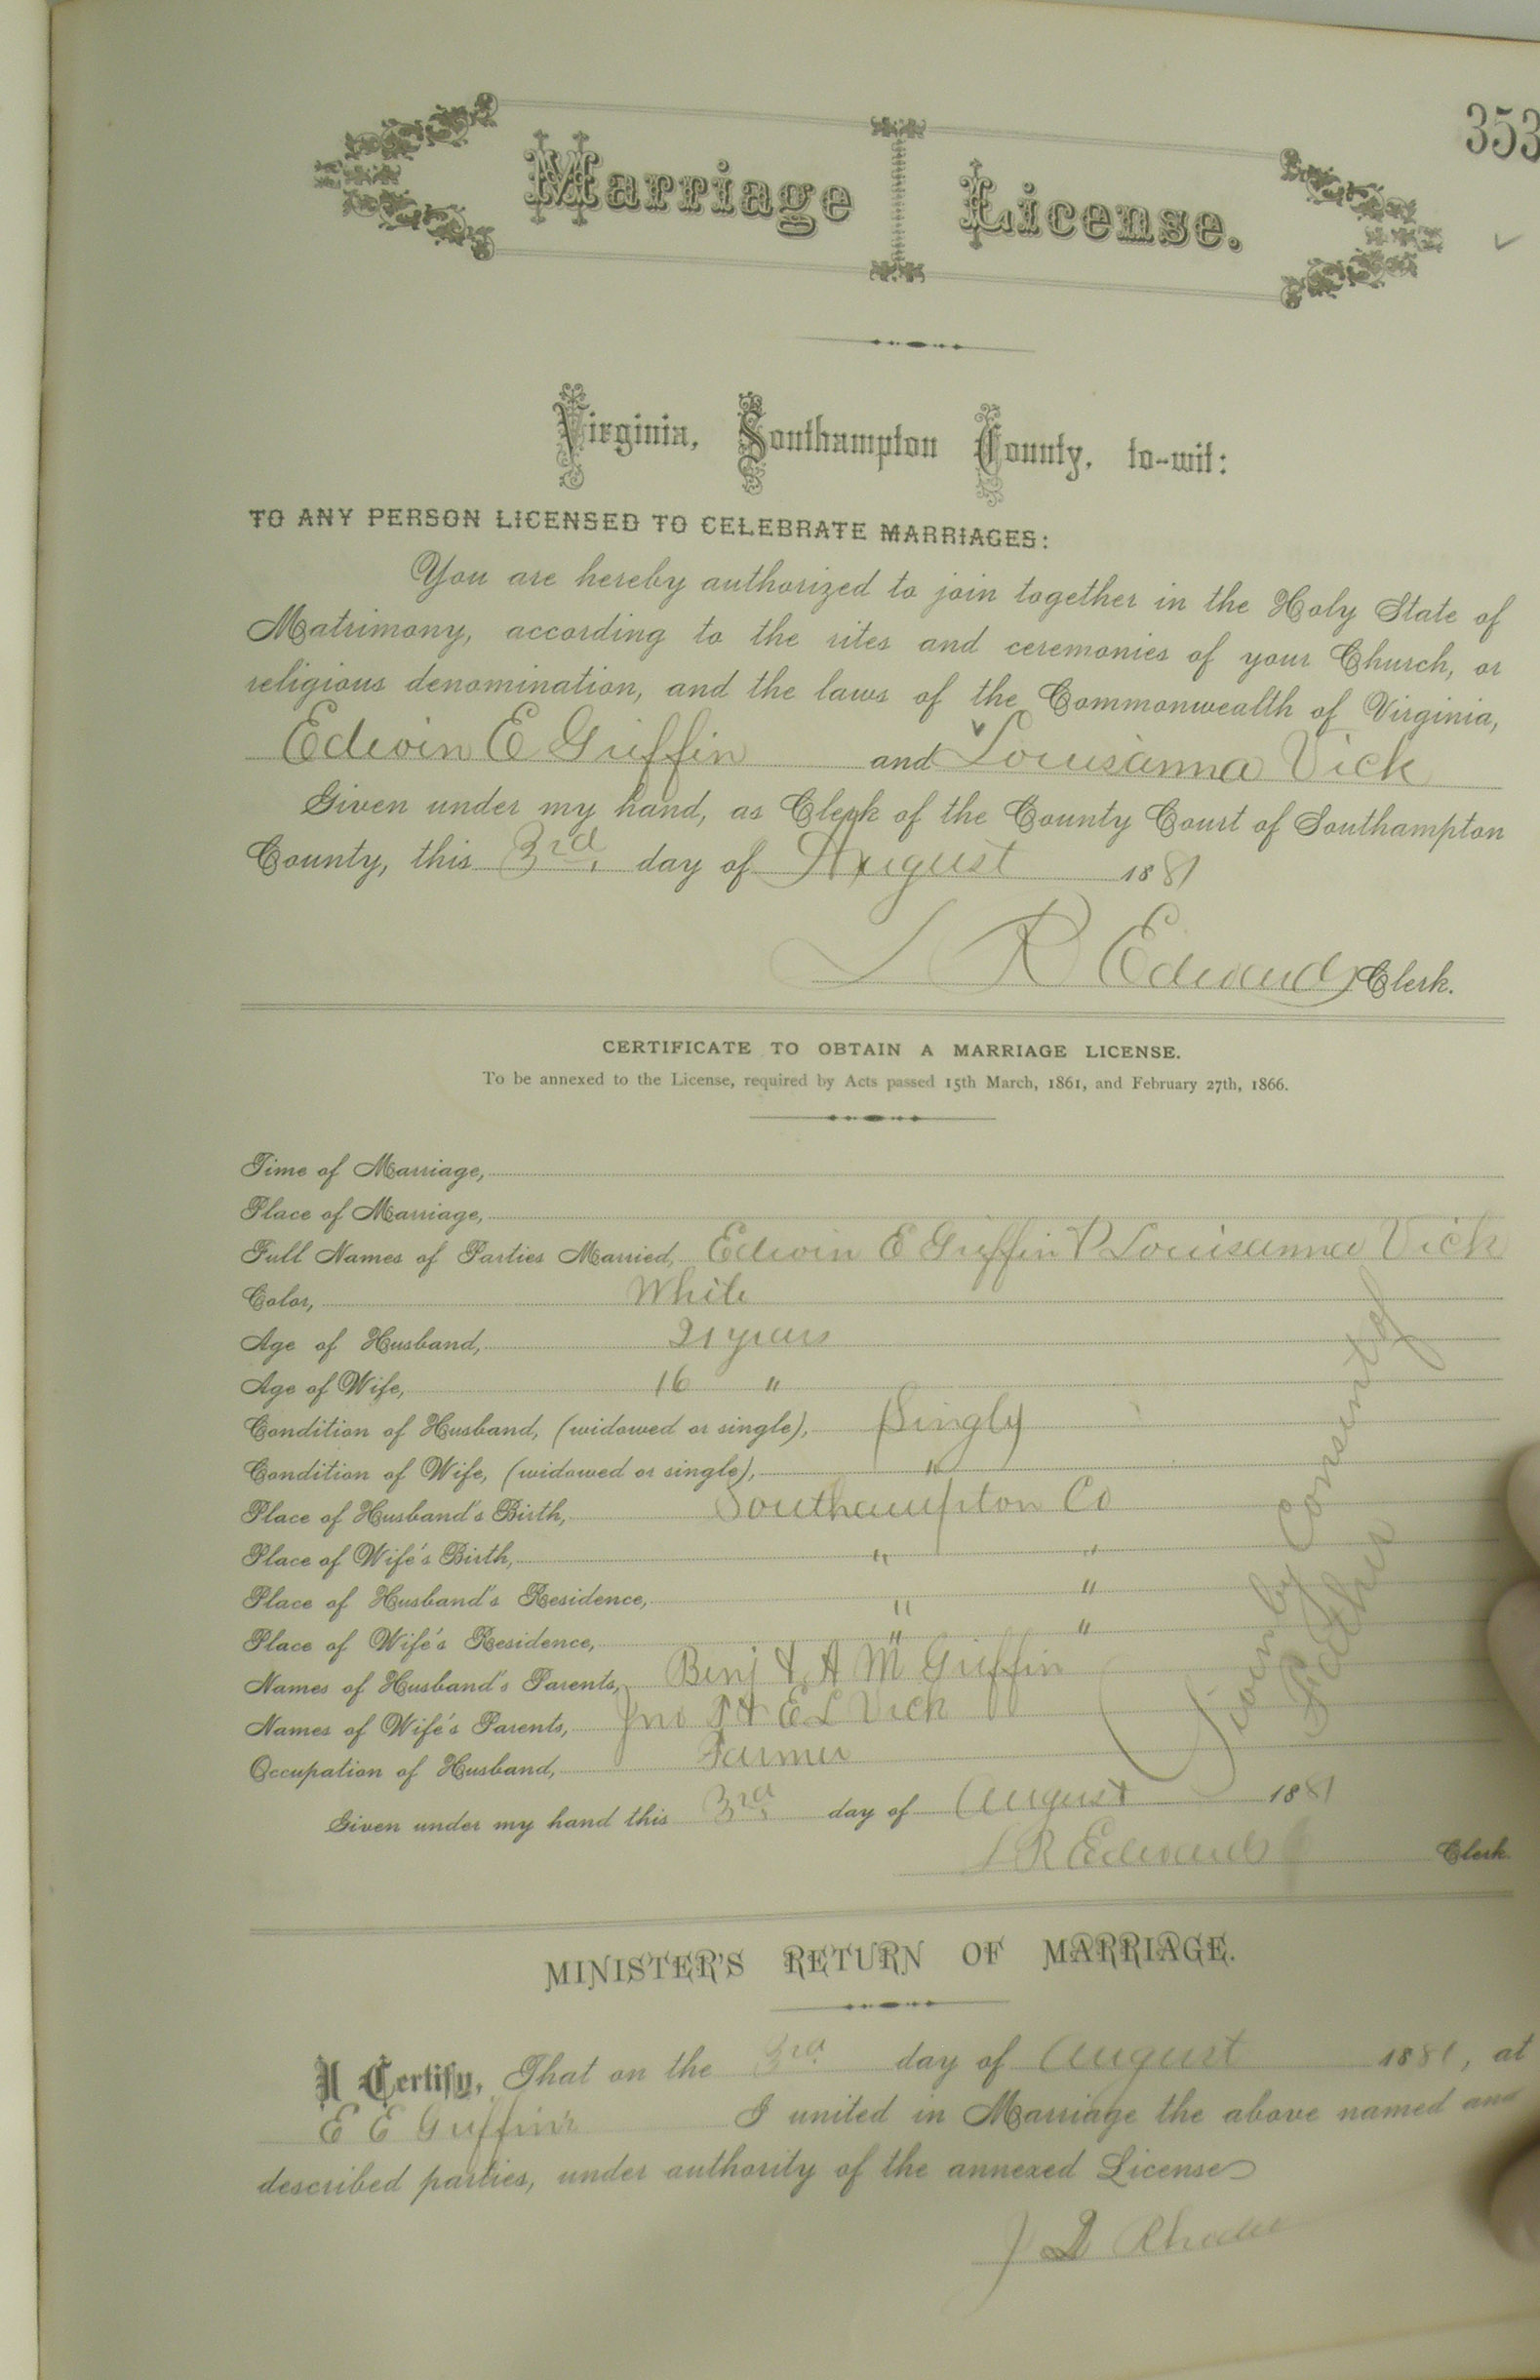 353
Marriage License.
Virginia, Southampton County, to-wit:
TO ANY PERSON LICENSED TO CELEBRATE MARRIAGES:
You are hereby authorized to join together in the Holy State of
Matrimony, according to the rites and ceremonies of your Church, or
religious denomination, and the laws of the Commonwealth of Virginia,
Edwin E Griffin and Louisanna Vick
Given under my hand, as Clerk of the County Court of Southampton
County, this 3rd day of August 1881
L R Edwards Clerk.
CERTIFICATE TO OBTAIN A MARRIAGE LICENSE.
To be annexed to the License, required by Acts passed 15th March, 1861, and February 27th, 1866.
Time of Marriage,
Place of Marriage,
Full Names of Parties Married, Edwin E Griffin & Louisanna Vick
Color, White
Age of Husband, 21 years
Age of Wife, 16 "
Condition of Husband, (widowed or single), (Single)
Condition of Wife, (widowed or single), "
Place of Husband's Birth, Southampton Co
Place of Wife's Birth, " "
Place of Husband's Residence, " "
Place of Wife's Residence, " "
Names of Husband's Parents, Benj & A M Griffin
Names of Wife's Parents, Jno T & E L Vick
Occupation of Husband, Farmer
Given by Consent of
Father
Given under my hand this 3rd day of August 1881
L R Edwards Clerk
MINISTER'S RETURN OF MARRIAGE.
I Certify, That on the 3rd day of August 1881, at
E E Griffin's I united in Marriage the above named and
described parties, under authority of the annexed License
J D Rhodes